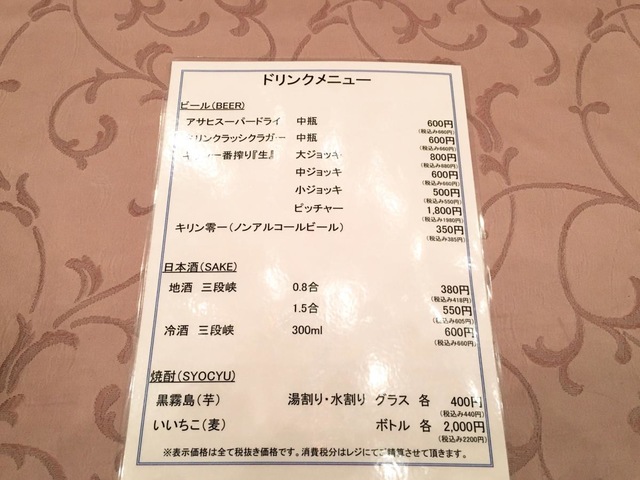 ドリンクメニュー
ビール(BEER)
アサヒスーパードライ 中瓶 600円
(税込み660円)
キリンクラッシックラガー 中瓶 600円
(税込み660円)
キリン一番搾り『生』 大ジョッキ 800円
(税込み880円)
中ジョッキ 600円
(税込み660円)
小ジョッキ 500円
(税込み550円)
ピッチャー 1,800円
(税込み1980円)
キリン零一(ノンアルコールビール) 350円
(税込み385円)
日本酒(SAKE)
地酒 三段峡 0.8合 380円
(税込み418円)
1.5合 550円
(税込み605円)
冷酒 三段峡 300ml 600円
(税込み660円)
焼酎(SYOCYU)
黒霧島(芋) 湯割り・水割り グラス 各 400円
(税込み440円)
いいちこ(麦) ボトル 各 2,000円
(税込み2200円)
※表示価格は全て税抜き価格です。消費税分はレジにてご精算させて頂きます。